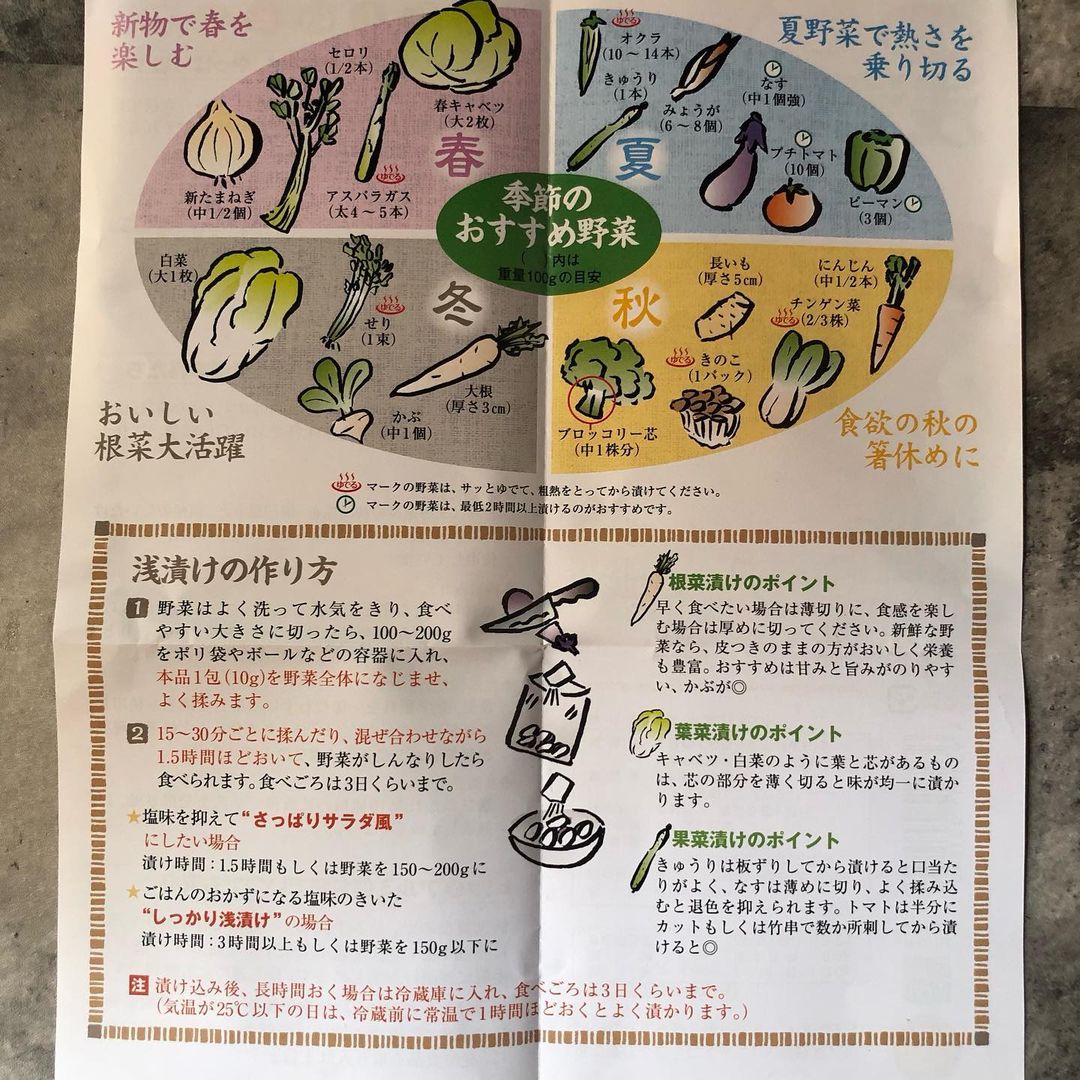 新物で春を
楽しむ
セロリ
(1/2本)
春キャベツ
(大2枚)
新たまねぎ
(中1/2個)
アスパラガス
(太4～5本)
ゆでる
春
夏野菜で熱さを
乗り切る
ゆでる
オクラ
(10～14本)
きゅうり
(1本)
みょうが
(6～8個)
なす
(中1個強)
プチトマト
(10個)
ピーマン
(3個)
夏
季節の
おすすめ野菜
(　)内は
重量100gの目安
白菜
(大1枚)
ゆでる
せり
(1束)
大根
(厚さ3cm)
かぶ
(中1個)
冬
おいしい
根菜大活躍
秋
長いも
(厚さ5cm)
にんじん
(中1/2本)
ゆでる
チンゲン菜
(2/3株)
ゆでる
きのこ
(1パック)
ブロッコリー芯
(中1株分)
食欲の秋の
箸休めに
ゆでる マークの野菜は、サッとゆでて、粗熱をとってから漬けてください。
マークの野菜は、最低2時間以上漬けるのがおすすめです。
浅漬けの作り方
1 野菜はよく洗って水気をきり、食べ
やすい大きさに切ったら、100～200g
をポリ袋やボールなどの容器に入れ、
本品1包(10g)を野菜全体になじませ、
よく揉みます。
2 15～30分ごとに揉んだり、混ぜ合わせながら
1.5時間ほどおいて、野菜がしんなりしたら
食べられます。食べごろは3日くらいまで。
★塩味を抑えて“さっぱりサラダ風”
にしたい場合
漬け時間：1.5時間もしくは野菜を150～200gに
★ごはんのおかずになる塩味のきいた
“しっかり浅漬け”の場合
漬け時間：3時間以上もしくは野菜を150g以下に
根菜漬けのポイント
早く食べたい場合は薄切りに、食感を楽し
む場合は厚めに切ってください。新鮮な野
菜なら、皮つきのままの方がおいしく栄養
も豊富。おすすめは甘みと旨みがのりやす
い、かぶが◎
葉菜漬けのポイント
キャベツ・白菜のように葉と芯があるもの
は、芯の部分を薄く切ると味が均一に漬か
ります。
果菜漬けのポイント
きゅうりは板ずりしてから漬けると口当た
りがよく、なすは薄めに切り、よく揉み込
むと退色を抑えられます。トマトは半分に
カットもしくは竹串で数か所刺してから漬
けると◎
注 漬け込み後、長時間おく場合は冷蔵庫に入れ、食べごろは3日くらいまで。
(気温が25℃以下の日は、冷蔵前に常温で1時間ほどおくとよく漬かります。)